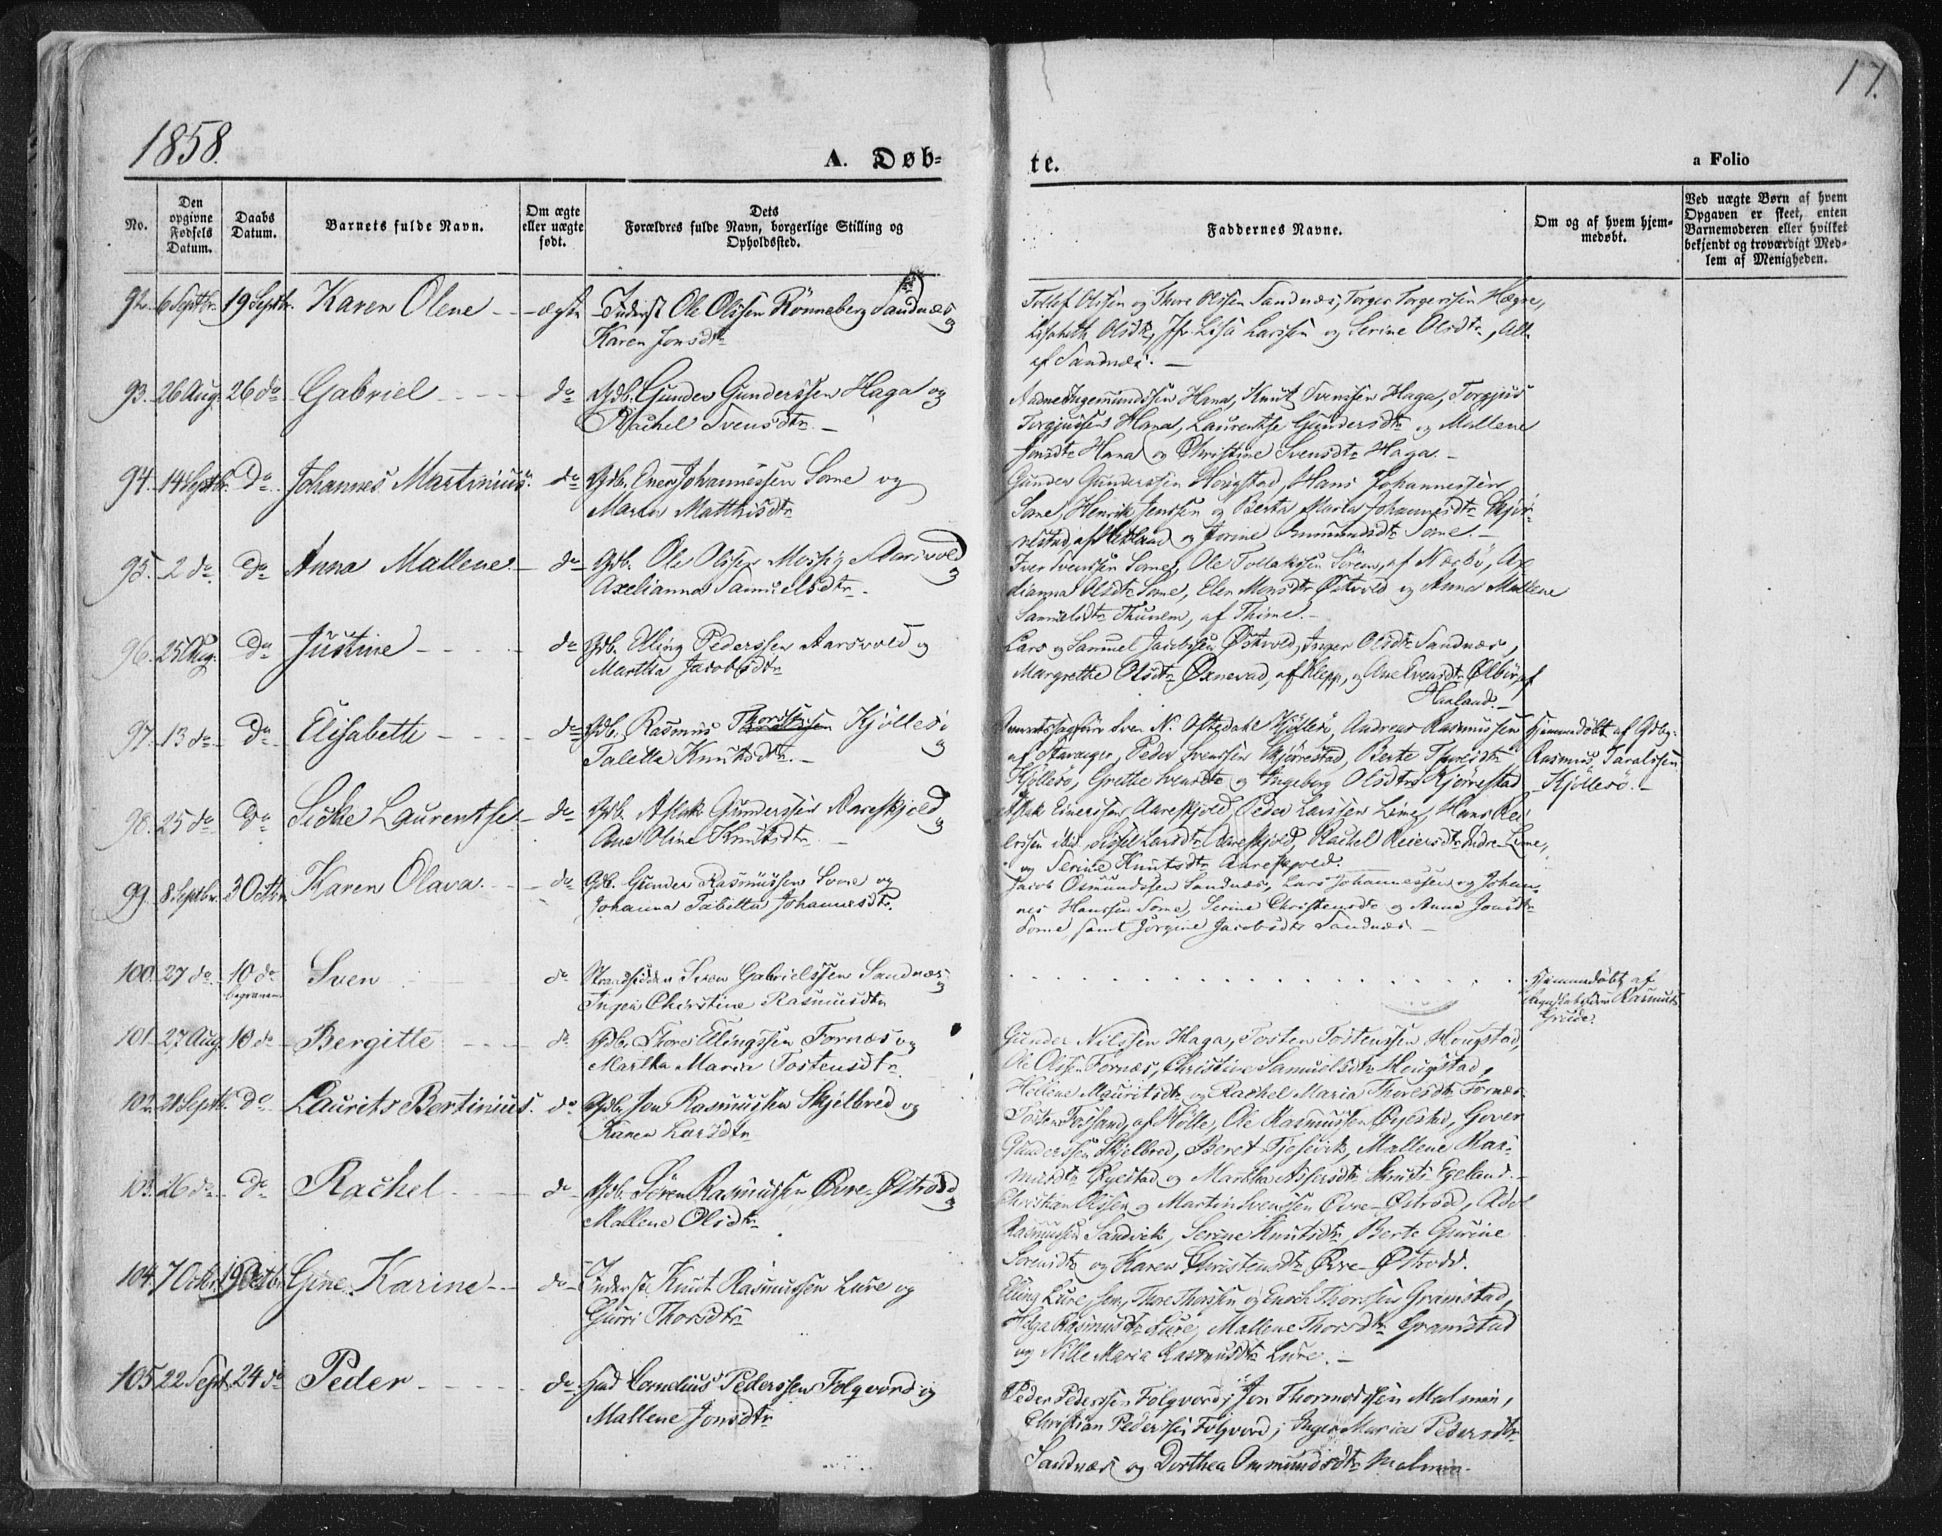 1858.
17.
A. Døb-
te.
a Folio
No.
Den opgivne Fødsels Datum.
Daabs Datum.
Barnets fulde Navn.
Om ægte eller uægte født.
Dets Forældres fulde Navn, borgerlige Stilling og Opholdssted.
Faddernes Navne.
Om og af hvem hjemmedøbt.
Ved uægte Børn af hvem Opgaven er skeet, enten Barnemoderen eller hvilket bekjendt og troværdigt Medlem af Menigheden.
92. 6 Septbr. 19 Septbr. Karen Olene ægte Inderst Ole Olssen Rønneberg Sandnæs og
Karen Jonsdtr
Tollef Olssen og Thore Olssen Sandnæs, Torger Torgerssen Høgne,
Lisabeth Olsdtr, Jfr. Lisa Larssen og Serine Olsdtr, Alle
af Sandnæs. —
93. 26 Aug. 26 do Gabriel do Gdb. Gunder Gunderssen Haga og
Rachel Svensdtr. —
Ingemundssen Hana, Knut Svenssen Haga, Torgjus
Torgjussen Hana, Laurentse Gundersdtr og Mallene
Jonsdtr Hana og Christine Svensdtr Haga. —
94. 14 Septbr. do Johannes Martinius. do Gdb. Einer Johannessen Some og
Maria Matthisdtr
Gunder Gunderssen Hougstad, Hans Johannessen
Some, Henrik Jenssen og Berta Maria Johannesdtr Skjør-
restad, af Hetland og Jorine Ommundsdtr Some. —
95. 2 do do Anna Mallene. do Gdb. Ole Olssen Mossig Aarsvold og
Axelianna Samuelsdtr.
Iver Svenssen Some, Ole Tollakssen Sørem, af Nærbø, Ax-
elianna Olsdtr Some, Elen Monsdtr Østvold og Anna Mallene
Samuelsdtr Thunem, af Thime. —
96. 25 Aug. do Justine do Gdb. Elling Pederssen Aarsvold og
Martha Jacobsdtr
Lars og Samuel Jacobssen Østvold, Inger Olsdtr Sandnæs,
Margrethe Olsdtr Øxnevad, af Klepp, og Ane Evensdtr Ølbør, af
Haaland. —
97. 13 do do Elisabette do Gdb. Rasmus Thordssen Kjøllesø og
Talette Knutsdtr. —
Sven N. Oftedahl Kjøllesø, Andreas Rasmussen
af Stavanger, Peder Svenssen Skjørrestad, Berte Thoresdtr
Kjøllesø, Grethe Svensdtr og Ingeborg Olsdtr Skjørrestad
Hjemmedøbt af Gdbr.
Rasmus Taralssen
Kjøllesø. —
98. 25 do do Sidse Laurentse do Gdb. Aslak Gunderssen Aareskjold og
Ane Oline Knutsdtr.
Aslak Einerssen Aareskjold, Peder Larssen Lime, Hans Rei-
erssen ibid, Sidsel Larsdtr Aareskjold, Rachel Reiersdtr Indre-Lime,
og Serine Knutsdtr Aareskjold.
99. 8 Septbr. 3 Octbr. Karen Olava. do Gdb. Gunder Rasmussen Some og
Johanna Tabitta Johannesdtr.
Jacob Osmundssen Sandnæs, Lars Johannessen og Johan-
nes Hanssen Some, Serine Christensdtr og Anna Jonsdtr
Some, samt Jørgine Jacobsdtr Sandnæs. —
100. 27 do 10 do begraven Sven do Strandsidder Sven Gabrielssen Sandnæs og
Inger Christine Rasmusdtr
Hjemmedøbt af
Rasmus
Grude.
101. 27 Aug. 10 do Bergitte do Gdb. Thore Elingssen Fornæs og
Martha Maria Tostensdtr.
Gunder Nilssen Haga, Tosten Tostenssen Hougstad,
Ole Olssen Fornæs, Christine Samuelsdtr Hougstad,
Hellene Mauritsdtr og Rachel Maria Thoresdtr Fornæs.
102. 21 Septbr. do Laurits Bertinius. do Gdb. Jon Rasmussen Skjelbred og
Karen Larsdtr
Tosten Fossand, af Hølle, Ole Rasmussen Øyestad, Gover
Gunderssen Skjelbred, Beret Tjesevik, Mallene Ras-
musdtr Øyestad og Martha Assersdtr Knuts Egeland. —
103. 26 do do Rachel do Gdb. Søren Rasmussen Øvre-Østrødd og
Mallene Olsdtr
Christian Olssen og Martin Svenssen Øvre-Østrød, Adol
Rasmussen Sandvik, Serine Knutsdtr, Berte Gurine
Sorensdtr og Karen Christensdtr Øvre-Østrødd.
104. 7 Octbr. 19 Octbr. Gine Karine do Inderst Knut Rasmussen Lure og
Gurri Thorsdtr
Elling Lure, sen, Thore Thorssen og Enoch Thorssen Gramstad,
Helga Rasmusdtr Lure, Mallene Thorsdtr Gramstad
og Nille Maria Rasmusdtr Lure. —
105 22 Sept. 24 do Peder do Hmd Cornelius Pederssen Folqvord og
Mallene Jonsdtr
Peder Pederssen Folqvord, Jon Thormodssen Malmin,
Christian Pederssen Folqvord, Inger Maria Pedersdtr
Sandnæs og Dorthea Ommundsdtr Malmin.